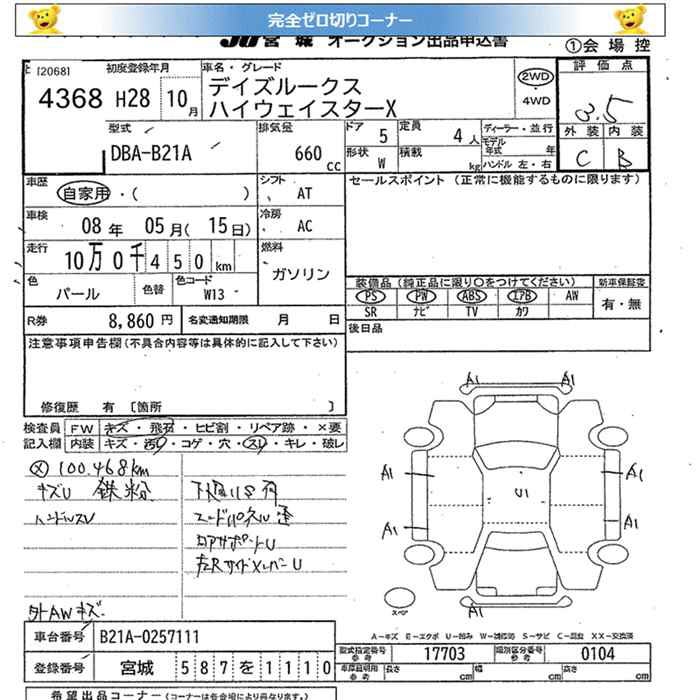 完全ゼロ切りコーナー
JU 宮城 オークション出品申込書 ①会場控
[2068] 初度登録年月 車名・グレード 評価点
4368 H28 10月 デイズルークス 2WD 3.5
ハイウェイスターX 4WD
型式 排気量 ドア 定員 ディーラー・並行 外装 内装
DBA-B21A 660cc 5 4人 モデル年式 年 C B
形状 W 積載 kg ハンドル 左・右
車歴 自家用・( ) シフト AT セールスポイント (正常に機能するものに限ります)
車検 08年 05月(15日) 冷房 AC
走行 10万0千450km 燃料 ガソリン
色 パール 色替 色コード W13
装備品 (純正品に限り○をつけてください) 新車保証書
PS PW ABS エアB AW 有・無
SR ナビ TV カワ
R券 8,860円 名変通知期限 月 日 後日品
注意事項申告欄(不具合内容等は具体的に記入して下さい)
修復歴 有 [箇所 ]
検査員 FW キズ・飛石・ヒビ割・リペア跡・×要
記入欄 内装 キズ・汚れ・コゲ・穴・スレ・キレ・破レ
100.468km
キズU 鉄粉 下廻りSP有
ハンドルスレ
リアサポートU
左RサイドメンバーU
外AWキズ
A1 A1
A1 A1
U1
A1 A1
A1
スペア
A-キズ E-エクボ U-凹み W-補修跡 S-サビ C-腐食 XX-交換済
車台番号 B21A-0257111
型式指定番号 参考 17703 類別区分番号 参考 0104
登録番号 宮城 587を1110
車庫証明用 参考 長さ cm 幅 cm 高さ cm
希望出品コーナー(コーナーは各会場により異なります)